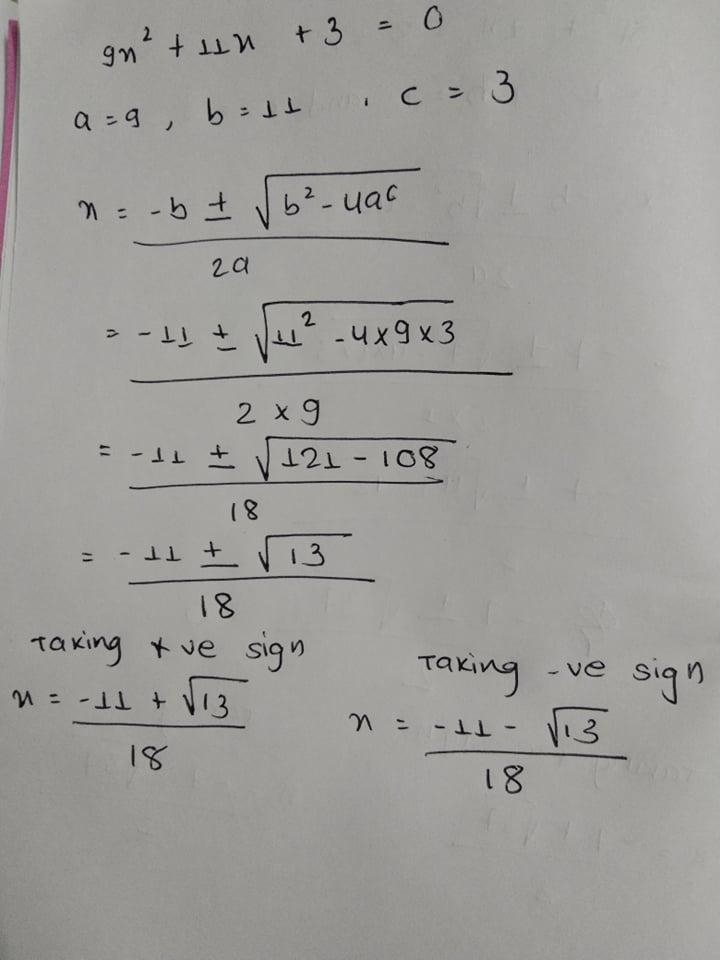 9x² + 11x + 3 = 0
a = 9 , b = 11 , c = 3
x = -b ± √(b² - 4ac)
2a
= -11 ± √(11² - 4×9×3)
2 × 9
= -11 ± √(121 - 108)
18
= -11 ± √13
18
Taking +ve sign
x = -11 + √13
18
Taking -ve sign
x = -11 - √13
18